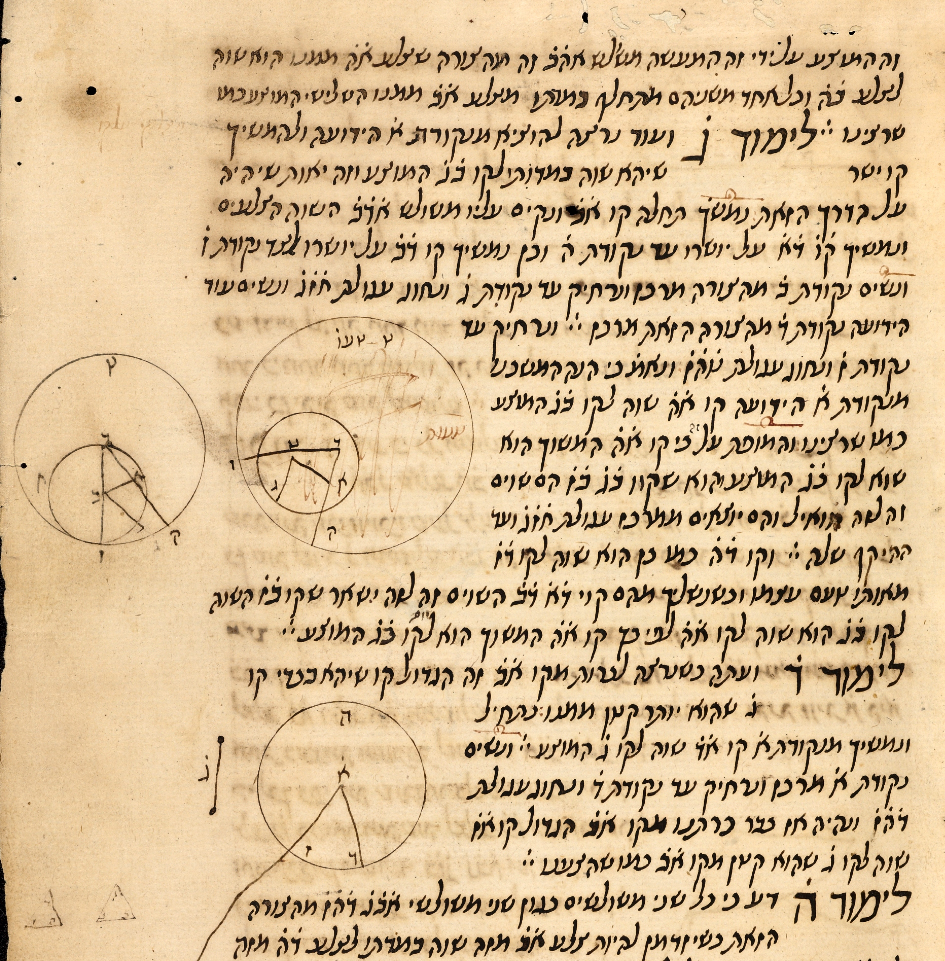 זה המוצע על ידי זה התעשה משלש אהב זה מהצורה שצלע אה ממנו הוא שוה
לצלע בה וכל אחד משניהם מתחלף במדתו מצלע אב ממנו השלישי המוצע כמו
שרצינו לימוד ג ועוד נרצה להוציא מנקודת א הידועה ולהמשיך
קו ישר שיהא שוה במדותי לקו בג המוצע וזה יאות שיהיה
על הדרך הזאת נמשך תחלה קו אב ונקים עליו משולש אדב השוה הצלעים
ונמשיך קו דא על יושרו עד נקודת ה וכן נמשיך קו דב על יושרו לצד נקודת ז
ונשים נקודת ב מהצורה מרכז ונרחיק עד נקודת ג ונחוג עגולת חזג ונשים עוד
הידועה נקודת ד מהצורה הזאת מרכז ונרחיק עד
נקודת ז ונחוג עגולת ונאמ כי הנה המשכנו
מנקודת א הידועה קו אה שוה לקו בג המוצע
כמו שרצינו והמופת על כי קו אה המשוך הוא
שוא לקו בג המוצע הוא שקוי בג בז הם שוים
זה לזה הואיל והם יוצאים ממרכז עגולת חזג ועד
ההיקף שלה וקו דה כמו כן הוא שוה לקו דז
מאותו טעם עצמו וכשנשליך מהם קוי דא דב השוים זה לזה ישאר שקו בז השוה
לקו בג הוא שוה לקו אה לפי כך קו אה המשוך הוא לקו בג המוצע
לימוד ד ועתה כשנרצה לכרות מקו אב זה הגדול קו שיהא כדי קו
ג שהוא יותר קטן ממנו נתחיל
ונמשיך מנקודת א קו אד שוה לקו ג המוצע ונשים
נקודת א מרכז ונרחיק עד נקודת ד ונחוג עגולת
דהז והיה אז כבר כרתנו מקו אב הגדול קו אז
שוה לקו ג שהוא קטן מקו אב כמו שהצענו
לימוד ה דע כי כל שני משולשים כגון שני משולשי אבג דהז מהצורה
הזאת כשיזדמן להיות צלע אב מזה שוה במדתו לצלע דה מזה
ט
ד
ב
א
ח
ז
ה
ט טעו
טעות
ד
ב
א
ג
ז
ה
ה
א
ז
ד
ג